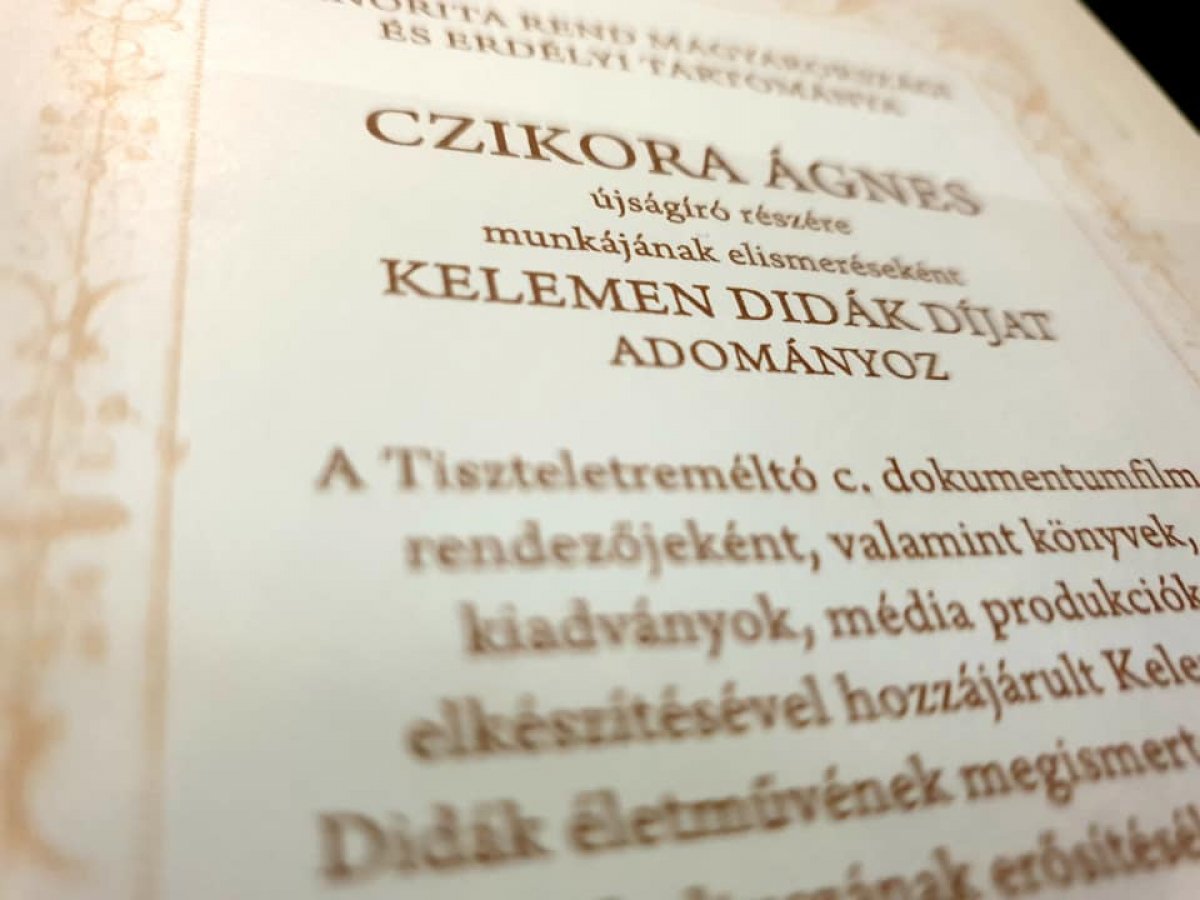 REND MAGYARORSZÁGI
ÉS ERDÉLYI TARTOMÁNYA
CZIKORA ÁGNES
újságíró részére
munkájának elismeréseként
KELEMEN DIDÁK DÍJAT
ADOMÁNYOZ
A Tiszteletreméltó c. dokumentumfilm
rendezőjeként, valamint könyvek,
kiadványok, média produkciók
elkészítésével hozzájárult Kele
Didák életművének megismert
erősítésé